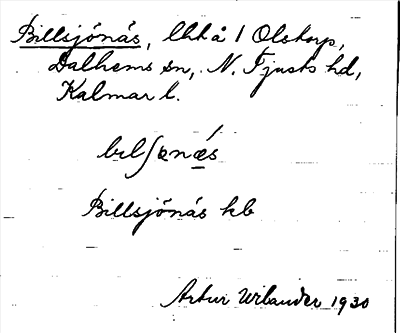 Billsjönäs, lht å 1 Olstorp,
Dalhems sn, N. Tjusts hd,
Kalmar l.
bilʃønæ̀s
Billsjönäs kb
Artur Wilander 1930